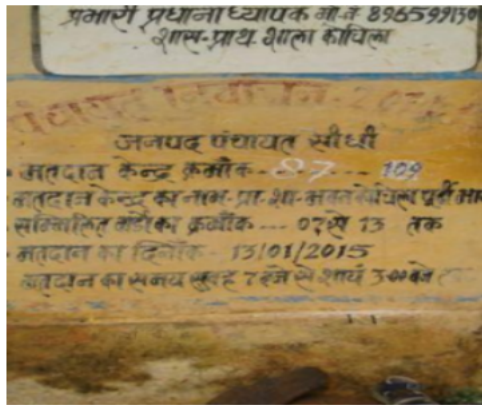 प्रभारी प्रधानाध्यापक मो.नं 8965991500
शास. प्राथ. शाला कोचिला
पंचायत निर्वाचन-
जनपद पंचायत सीधी
मतदान केन्द्र क्रमांक--- 87 --- 109
मतदान केन्द्र का नाम-प्रा.शा. भवन कोचिला पूर्वी भाग
सम्मिलित वार्डो का क्रमांक--- 07 से 13 तक
मतदान का दिनांक-- 13/01/2015
मतदान का समय सुबह 7 बजे से शायं 3.00 बजे